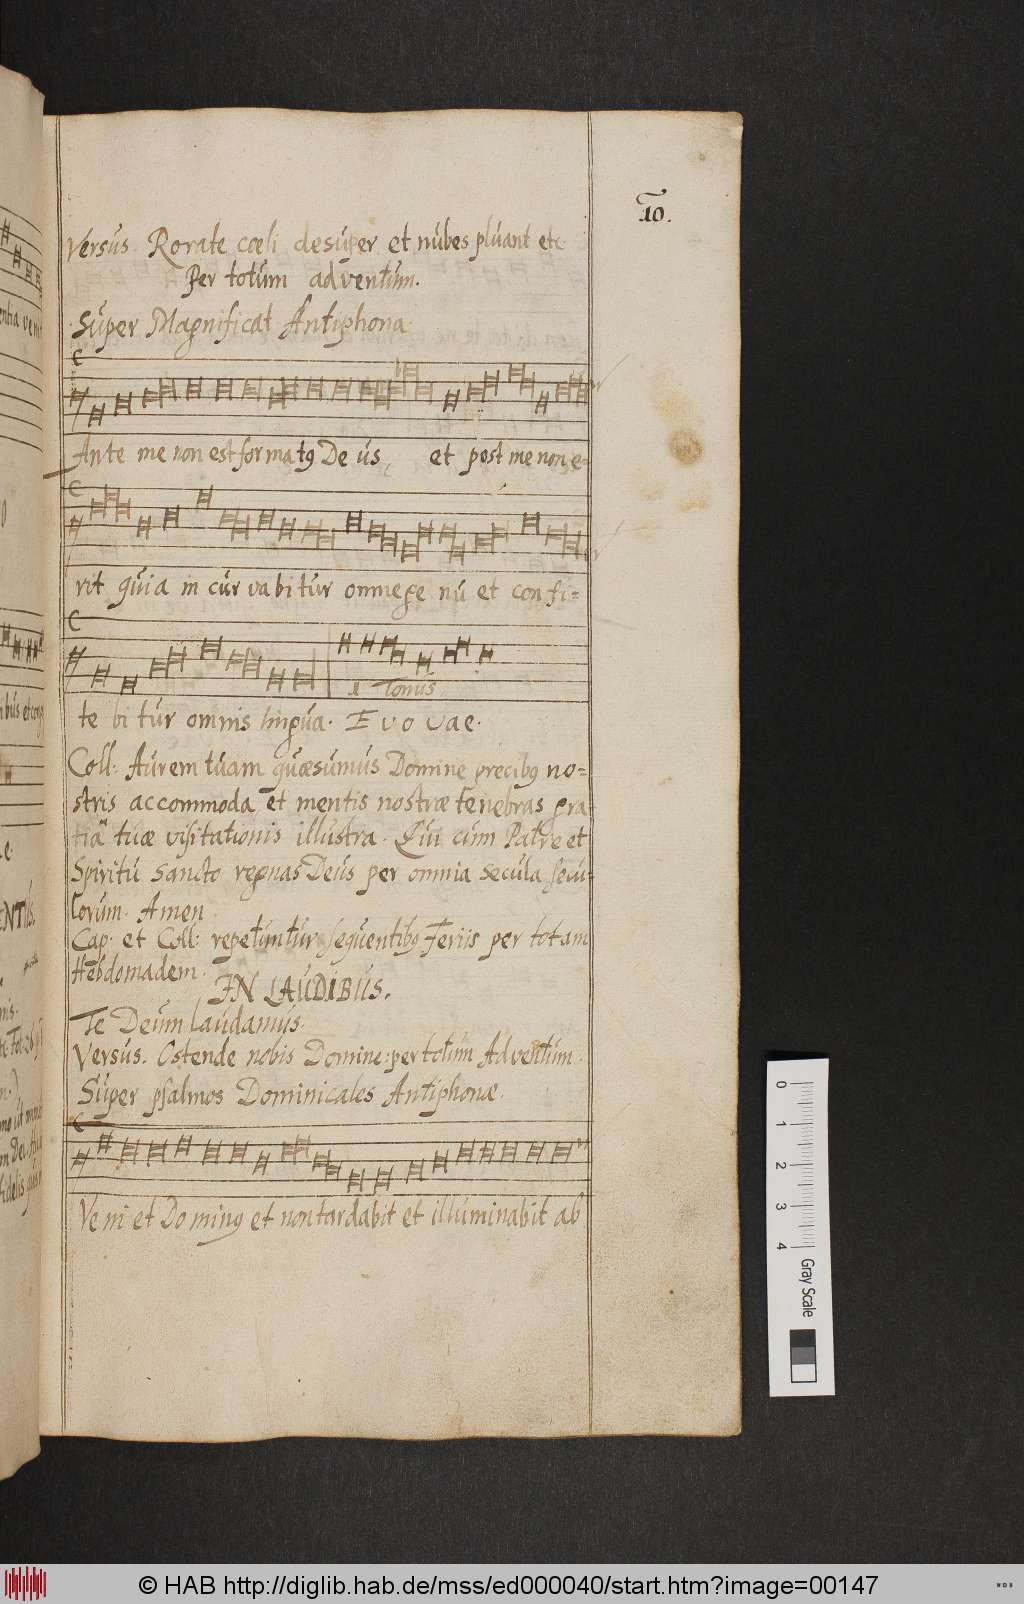 10.
Versus. Rorate cœli desuper et nubes pluant etc
Per totum adventum.
Super Magnificat Antiphona
Ante me non est formatꝰ Deus, et post me non e=
rit quia incurvabitur omne ge nu et confi=
1 Tonus
te bi tur omnis lingua. E v o v a e.
Coll: Aurem tuam quæsumus Domine precibꝰ no=
stris accommoda et mentis nostræ tenebras gra
tia tuæ visitationis illustra. Qui cum Patre et
Spiritu sancto regnas Deus per omnia secula secu=
lorum. Amen
Cap. et Coll: repetuntur sequentibꝰ Feriis per totam
Hebdomadem.
IN LAUDIBUS.
Te Deum laudamus.
Versus. Ostende nobis Domine: per totum Adventum.
Super psalmos Dominicales Antiphonæ.
Ve ni et Do minꝰ et non tardabit et illuminabit ab
0 1 2 3 4 Gray Scale
© HAB http://diglib.hab.de/mss/ed000040/start.htm?image=00147